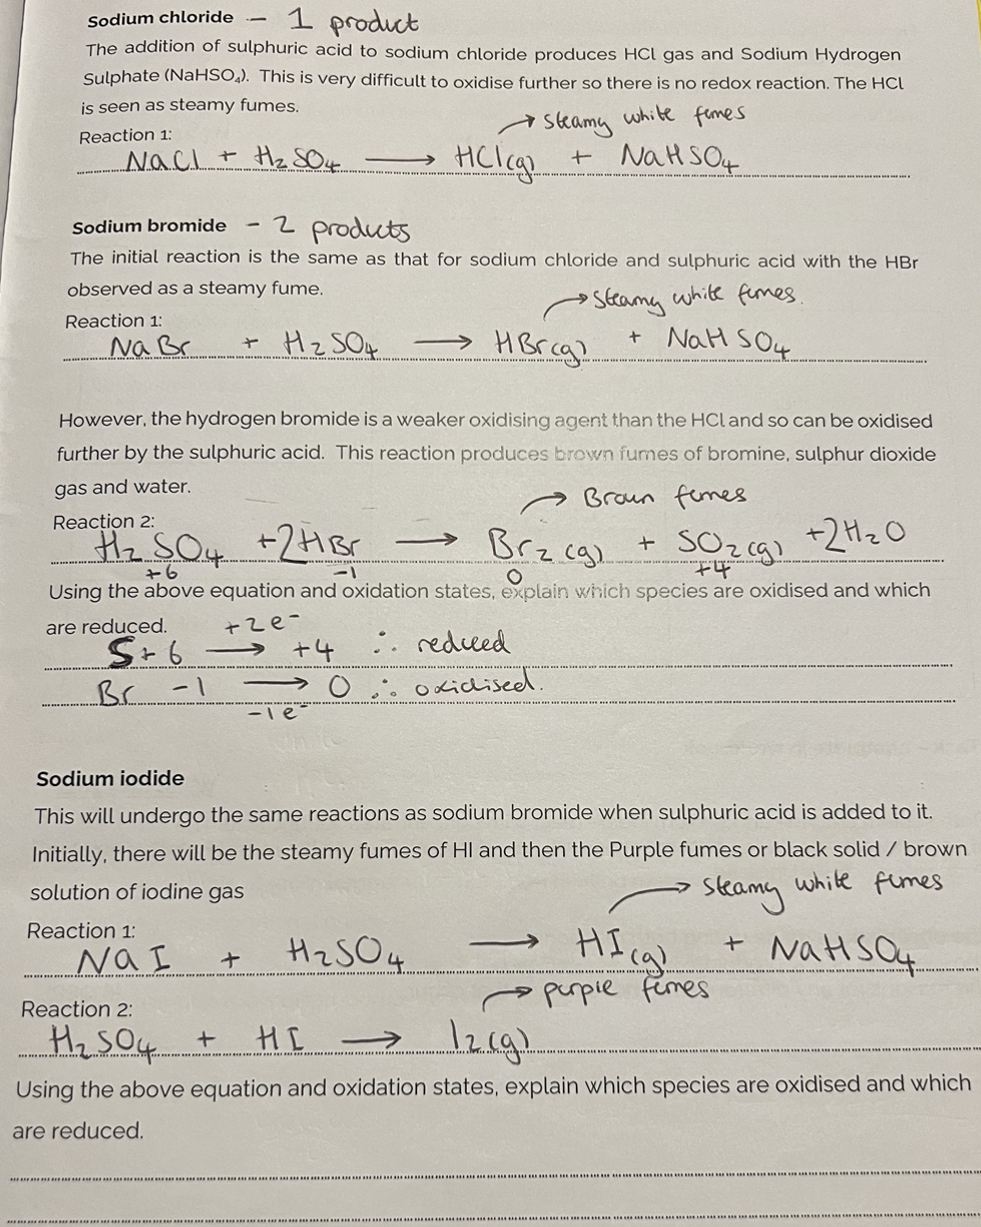 Sodium chloride – 1 product
The addition of sulphuric acid to sodium chloride produces HCl gas and Sodium Hydrogen
Sulphate (NaHSO₄). This is very difficult to oxidise further so there is no redox reaction. The HCl
is seen as steamy fumes.
→ steamy white fumes
Reaction 1:
NaCl + H₂SO₄ ⟶ HCl(g) + NaHSO₄
Sodium bromide – 2 products
The initial reaction is the same as that for sodium chloride and sulphuric acid with the HBr
observed as a steamy fume.
→ steamy white fumes.
Reaction 1:
NaBr + H₂SO₄ ⟶ HBr(g) + NaHSO₄
However, the hydrogen bromide is a weaker oxidising agent than the HCl and so can be oxidised
further by the sulphuric acid. This reaction produces brown fumes of bromine, sulphur dioxide
gas and water.
→ Brown fumes
Reaction 2:
H₂SO₄ +2HBr ⟶ Br₂(g) + SO₂(g) +2H₂O
+6 -1 0 +4
Using the above equation and oxidation states, explain which species are oxidised and which
are reduced.
+2e⁻
S+6 ⟶ +4 ∴ reduced
Br -1 ⟶ 0 ∴ oxidised.
-1e⁻
Sodium iodide
This will undergo the same reactions as sodium bromide when sulphuric acid is added to it.
Initially, there will be the steamy fumes of HI and then the Purple fumes or black solid / brown
solution of iodine gas
→ steamy white fumes
Reaction 1:
NaI + H₂SO₄ ⟶ HI(g) + NaHSO₄
→ purple fumes
Reaction 2:
H₂SO₄ + HI ⟶ I₂(g)
Using the above equation and oxidation states, explain which species are oxidised and which
are reduced.